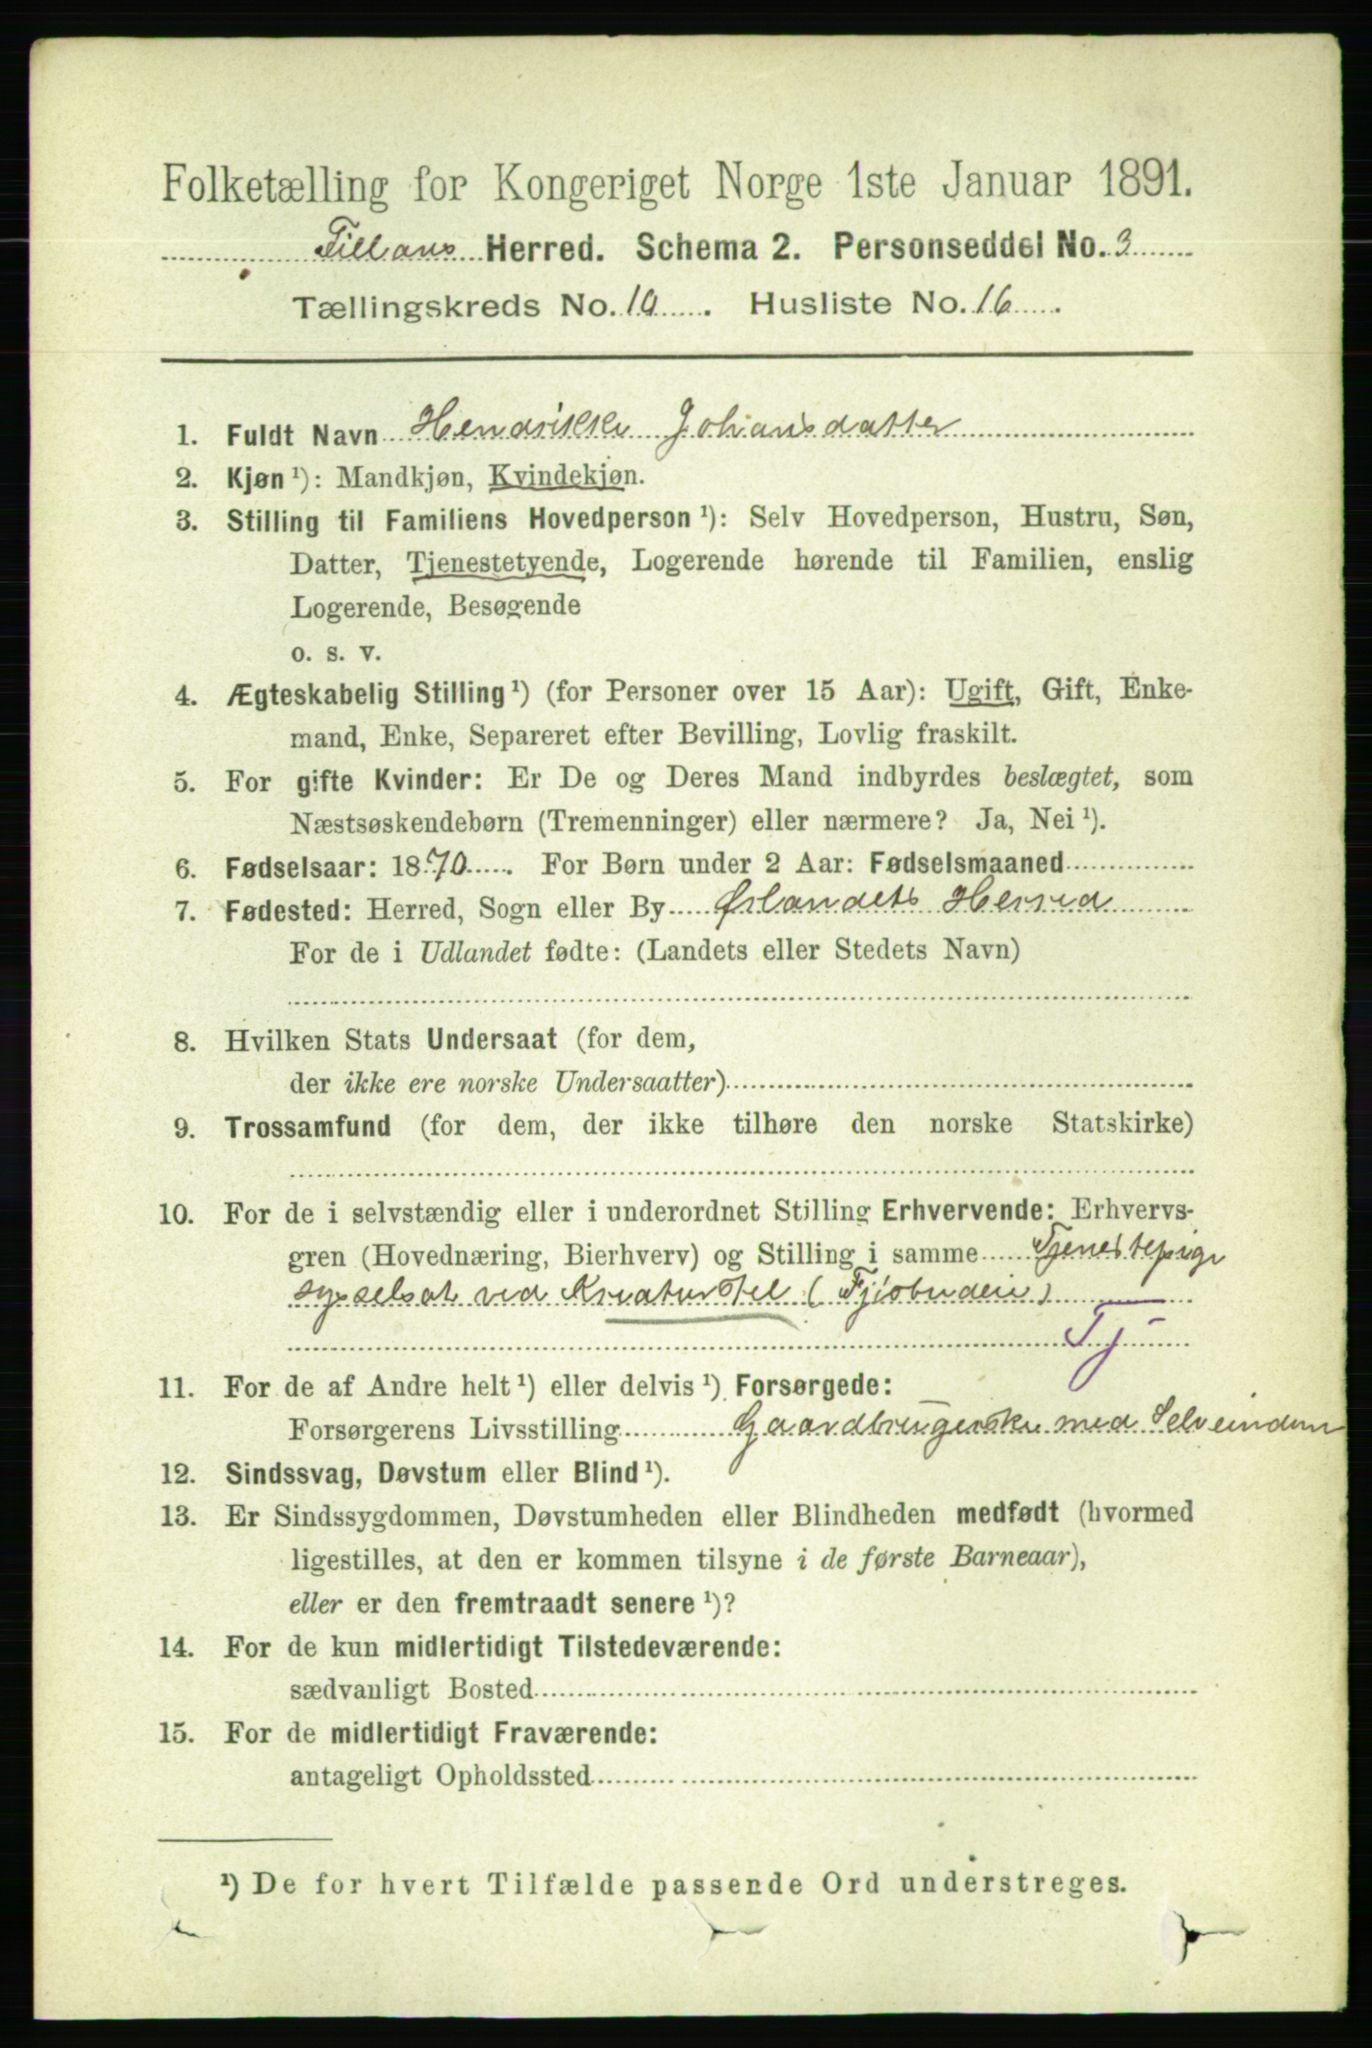 Folketælling for Kongeriget Norge 1ste Januar 1891.
Fillans Herred. Schema 2. Personseddel No. 3
Tællingskreds No. 10. Husliste No. 16.
1. Fuldt Navn Hendrikke Johansdatter
2. Kjøn ¹): Mandkjøn, Kvindekjøn.
3. Stilling til Familiens Hovedperson ¹): Selv Hovedperson, Hustru, Søn,
Datter, Tjenestetyende, Logerende hørende til Familien, enslig
Logerende, Besøgende
o. s. v.
4. Ægteskabelig Stilling ¹) (for Personer over 15 Aar): Ugift, Gift, Enke-
mand, Enke, Separeret efter Bevilling, Lovlig fraskilt.
5. For gifte Kvinder: Er De og Deres Mand indbyrdes beslægtet, som
Næstsøskendebørn (Tremenninger) eller nærmere? Ja, Nei ¹).
6. Fødselsaar: 1870. For Børn under 2 Aar: Fødselsmaaned
7. Fødested: Herred, Sogn eller By Ørlandets Herred
For de i Udlandet fødte: (Landets eller Stedets Navn)
8. Hvilken Stats Undersaat (for dem,
der ikke ere norske Undersaatter)
9. Trossamfund (for dem, der ikke tilhøre den norske Statskirke)
10. For de i selvstændig eller i underordnet Stilling Erhvervende: Erhvervs-
gren (Hovednæring, Bierhverv) og Stilling i samme Tjenestepige
sysselsat ved Kreaturstel (Fjøsbudeie)
Tj
11. For de af Andre helt ¹) eller delvis ¹) Forsørgede:
Forsørgerens Livsstilling Gaardbrugerske med Selveiendom
12. Sindssvag, Døvstum eller Blind ¹).
13. Er Sindssygdommen, Døvstumheden eller Blindheden medfødt (hvormed
ligestilles, at den er kommen tilsyne i de første Barneaar),
eller er den fremtraadt senere ¹)?
14. For de kun midlertidigt Tilstedeværende:
sædvanligt Bosted
15. For de midlertidigt Fraværende:
antageligt Opholdssted
¹) De for hvert Tilfælde passende Ord understreges.